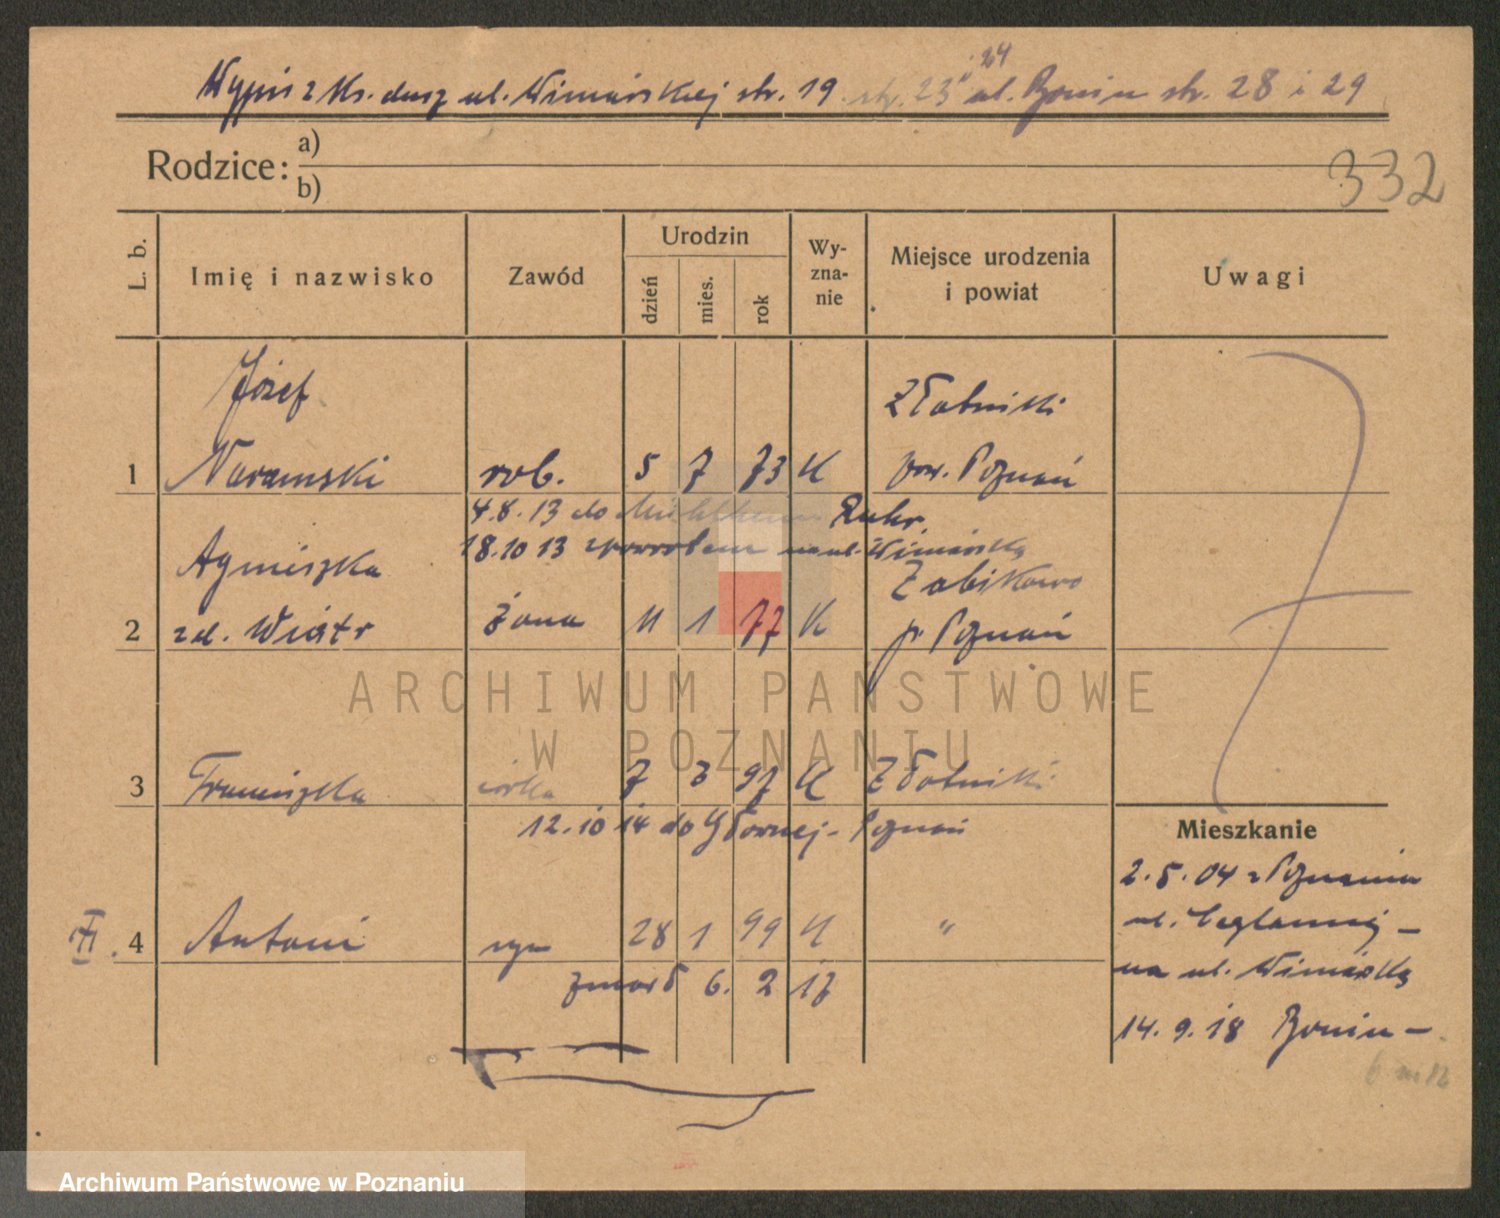 Wypis z Ks. dusz ul. Winiarskiej str. 19 str. 23 i 24 ul. Bonin str. 28 i 29
Rodzice: a)
b)
332
L. b. Imię i nazwisko Zawód Urodzin dzień mies. rok Wy-zna-nie Miejsce urodzenia i powiat Uwagi
Józef Złotniki
1 Naramski rob. 5 7 73 K pow. Poznań
4.8.13 do Mühlheim Ruhr.
18.10 13 zpowrotem na ul. Winiarską
Agnieszka Żabikowo
2 zd. Wiatr żona 11 1 77 K p. Poznań
3 Franciszka córka 7 3 97 K Złotniki
12.10 14 do Głównej - Poznań
Mieszkanie
2.5.04 z Poznania
II. 4 Antoni syn 28 1 99 K "
ul. -
zmarł 6. 2 17
na ul. Winiarską
14.9.18 Bonin -
ARCHIWUM PAŃSTWOWE
W POZNANIU
Archiwum Państwowe w Poznaniu